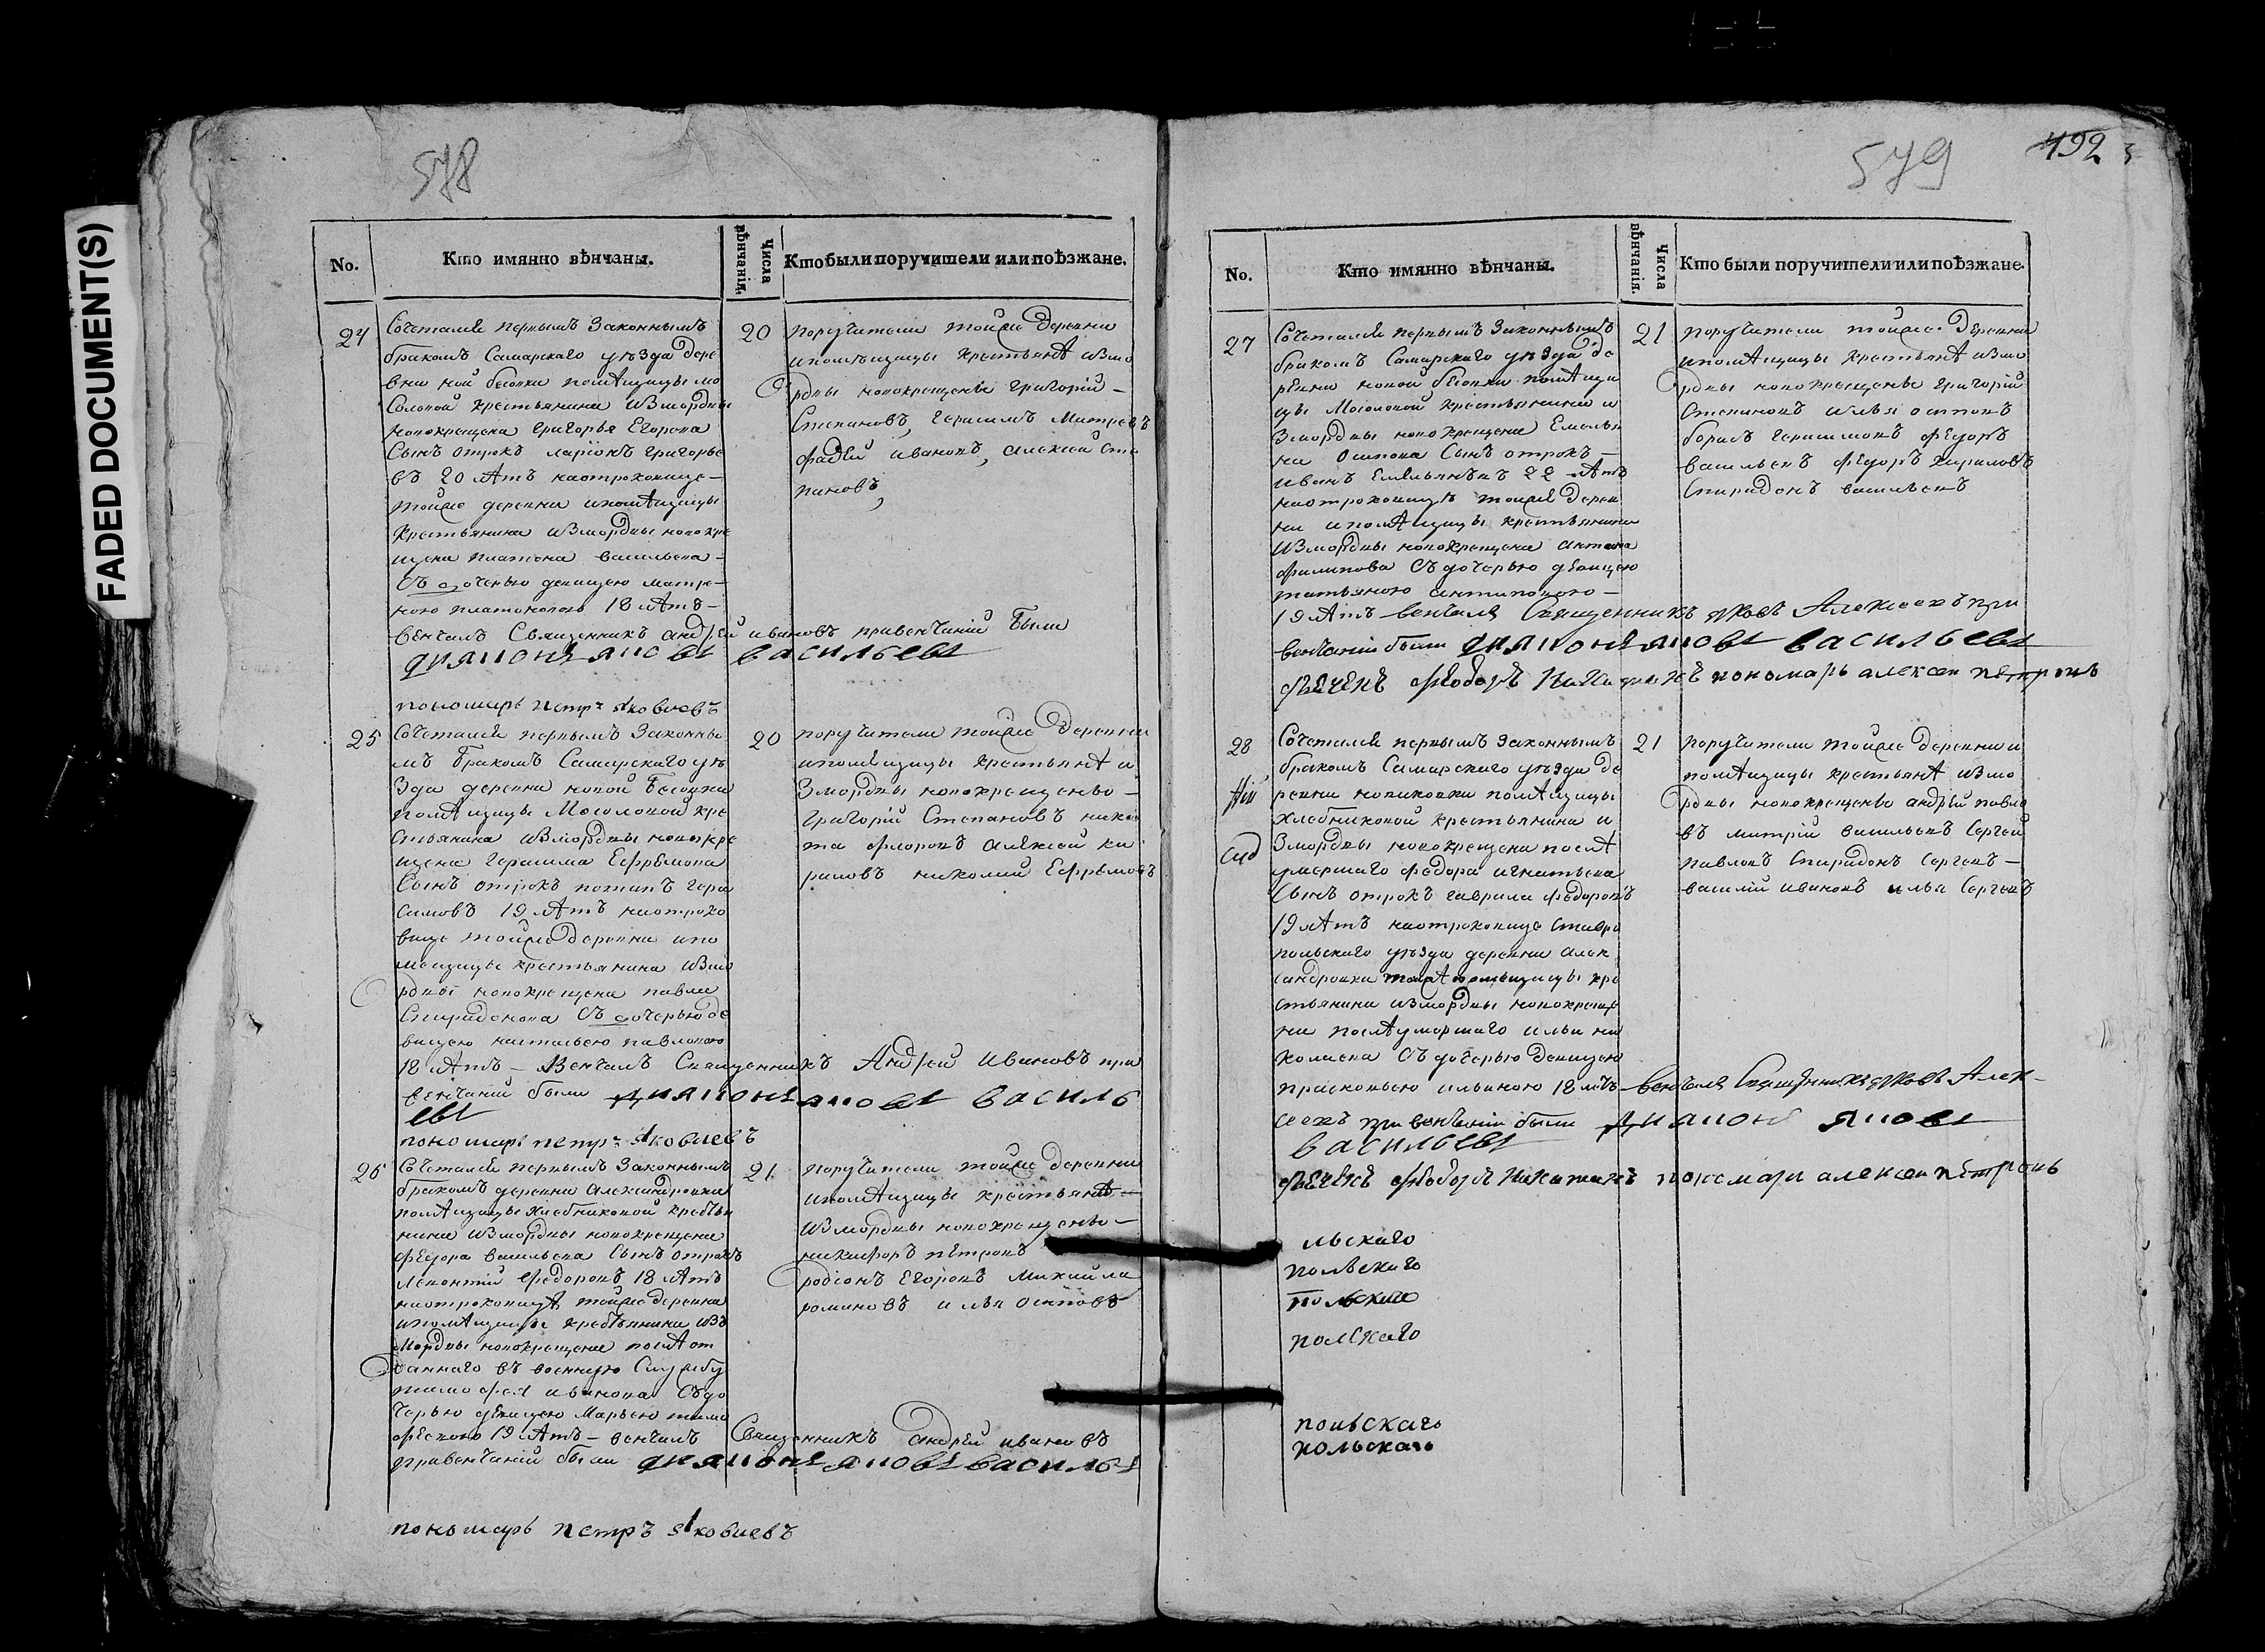 FADED DOCUMENT(S)
578
No.
Кто имянно вѣнчаны.
Числа вѣнчанія.
Кто были поручители или поѣзжане.
24
Сочетался первымъ законнымъ
бракомъ Самарскаго уѣзда дере
вни ной бесовки помѣщицы мо
соловой крестьянина измордвы
новокрещена григорья Егорова
Сынъ отрокъ ларіонъ григорье
въ 20 лѣтъ наотроковице
тойже деревни ипомѣщицы
крестьянина измордвы новокре
щена платона васильева
Съ дочерью девицею матре
ною платоновою 18 лѣтъ
венчалъ Священникъ андрей ивановъ привенчаніи были
васильевъ
пономарь петръ яковлевъ
20
поручители тойже деревни
ипомѣщицы крестьянѣ измо
рдвы новокрещены григорій
Степановъ, герасимъ Митревъ
фадѣй ивановъ, алексей сте
пановъ,
25
Сочетался первымъ законны
мъ бракомъ Самарскаго уѣ
зда деревни новой бесовки
помѣщицы Мосоловой кре
стьянина измордвы новокре
щена герасима Ефрѣмова
Сынъ отрокъ потапъ гера
симовъ 19 лѣтъ наотроко
вице тойже деревни ипо
мещицы крестьянина измо
рдвы новокрещена павла
Спиридонова Съ дочерью де
вицею настасьею павловою
18 лѣтъ – Венчалъ Священникъ Андрей Ивановъ при
венчаніи были василь
евъ
пономарь петръ яковлевъ
20
поручители тойже деревни
ипомѣщицы крестьянѣ и
змордвы новокрещены
григорій Степановъ ники
та флоровъ алексей ки
риловъ николай Ефрѣмовъ
26
Сочетался первымъ законнымъ
бракомъ деревни александровки
помѣщицы хлебниковой крестья
нина измордвы новокрещена
федора васильева Сынъ отрокъ
Леонтій федоровъ 18 лѣтъ
наотроковицѣ тойже деревни
ипомѣщицы крестьянина изъ
Мордвы новокрещена послѣ от
даннаго въ военную Службу
тимофея иванова Съ до
черью девицею Марьею тимо
феевою 19 лѣтъ – венчалъ Священникъ андрей ивановъ
привенчаніи были
пономарь петръ яковлевъ
21
поручители тойже деревни
ипомѣщицы крестьянѣ
измордвы новокрещены
никифоръ петровъ
родіонъ Егоровъ михайла
романовъ илья осиповъ
579
492
No.
Кто имянно вѣнчаны.
Числа вѣнчанія.
Кто были поручители или поѣзжане.
27
Сочетался первымъ законнымъ
бракомъ Самарскаго уѣзда де
ревни новой бесовки помѣщи
цы Мосоловой крестьянина и
змордвы новокрещена Емелья
на осипова Сынъ отрокъ
иванъ Емельянѣвъ 22 лѣтъ
наотроковицѣ тойже дерев
ни ипомѣщицы крестьянина
измордвы новокрещена антипа
филипова Съ дочерью девицею
татьяною антиповою
19 лѣтъ венчалъ Священникъ яковъ Алексеевъ при
венчаніи были васильевъ
феодоръ Никитинъ пономарь алексей петровъ
21
поручители тойже деревни
ипомѣщицы крестьянѣ измо
рдвы новокрещены григорій
Степановъ илья осиповъ
борисъ герасимовъ федоръ
васильевъ федоръ кириловъ
Спиридонъ васильевъ
28
Сочетался первымъ законнымъ
бракомъ Самарскаго уѣзда де
ревни новиковки помѣщицы
хлебниковой крестьянина и
змордвы новокрещена послѣ
умершаго федора игнатьева
Сынъ отрокъ гаврила федоровъ
19 лѣтъ наотроковице ставро
польскаго уѣзда деревни алек
сандровки тойже помѣщицы кре
стьянина измордвы новокреще
на послѣ умершаго ильи ни
колаева Съ дочерью девицею
прасковьею ильиною 18 лѣтъ венчалъ Священникъ яковъ Алек
сеевъ при венчаніи были
васильевъ
феодоръ Никитинъ пономарь алексей петровъ
21
поручители тойже деревни и
помѣщицы крестьянѣ измо
рдвы новокрещены андрей павло
въ митрій васильевъ Сергей
павловъ Спиридонъ Сергевъ
василій ивановъ илья Сергевъ
льскаго
польскаго
польскаго
полскаго
польскаго
польскаго